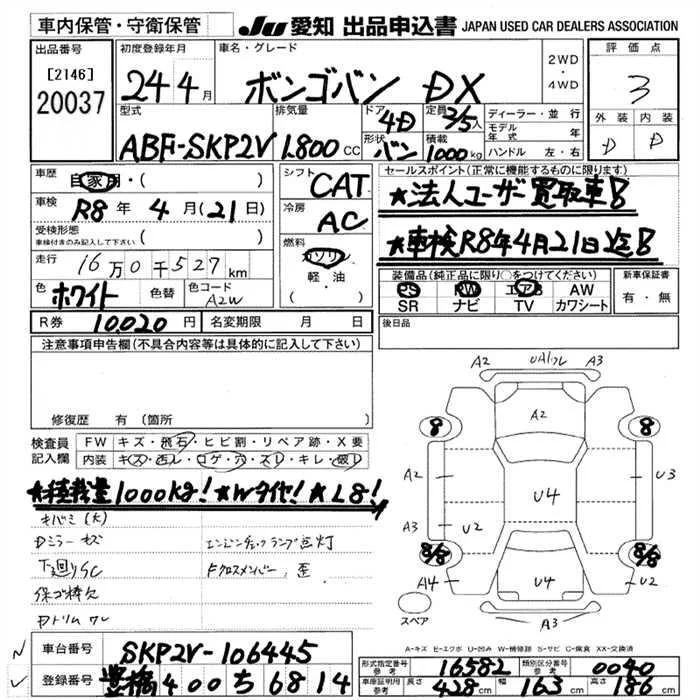 車内保管・守衛保管
JU 愛知 出品申込書 JAPAN USED CAR DEALERS ASSOCIATION
出品番号
[2146]
20037
初度登録年月
24年4月
車名・グレード
ボンゴバン DX
2WD・4WD
評価点
3
外装 内装
D D
型式
ABF-SKP2V
排気量
1800cc
ドア 4D
形状 バン
定員 2/5人
積載 1000kg
ディーラー・並行
モデル年式 年
ハンドル 左・右
車歴
自家用・( )
車検
R8年4月(21日)
受検形態
車検付きのみ記入して下さい ( )
走行
16万0千527km
色
ホワイト
色替
色コード
A2W
シフト
CAT
冷房
AC
燃料
ガソリン
軽・油
セールスポイント(正常に機能するものに限ります)
★法人ユーザー買取車!!
★車検R8年4月21日迄!!
装備品(純正品に限り○をつけてください)
PS PW エアB AW
SR ナビ TV カワシート
新車保証書
有・無
R券 10,020円
名変期限 月 日
後日品
注意事項申告欄(不具合内容等は具体的に記入して下さい)
修復歴 有(箇所
検査員記入欄
FW キズ・飛石・ヒビ割・リペア跡・X要
内装 キズ・汚レ・コゲ・穴・スリ・キレ・破レ
★積載量1000kg!★Wタイヤ!★L8!
キバミ(大)
Dミラーキズ
エンジンチェックランプ点灯
下廻りSC
Fクロスメンバー、歪
保コ棒欠
Dトリムワレ
A2 UA1ワレ A3
A2
8 8
A2 U3
U4
A3 U2
8/8 8/8
A4 U4 U2
A3
スペア
A-キズ E-エクボ U-凹み W-補修跡 S-サビ C-腐食 XX-交換済
車台番号
SKP2V-106445
登録番号
豊橋400ち6814
形式指定番号 参考
16582
類別区分番号 参考
0040
車庫証明用 参考
長さ 428cm 幅 163cm 高さ 186cm